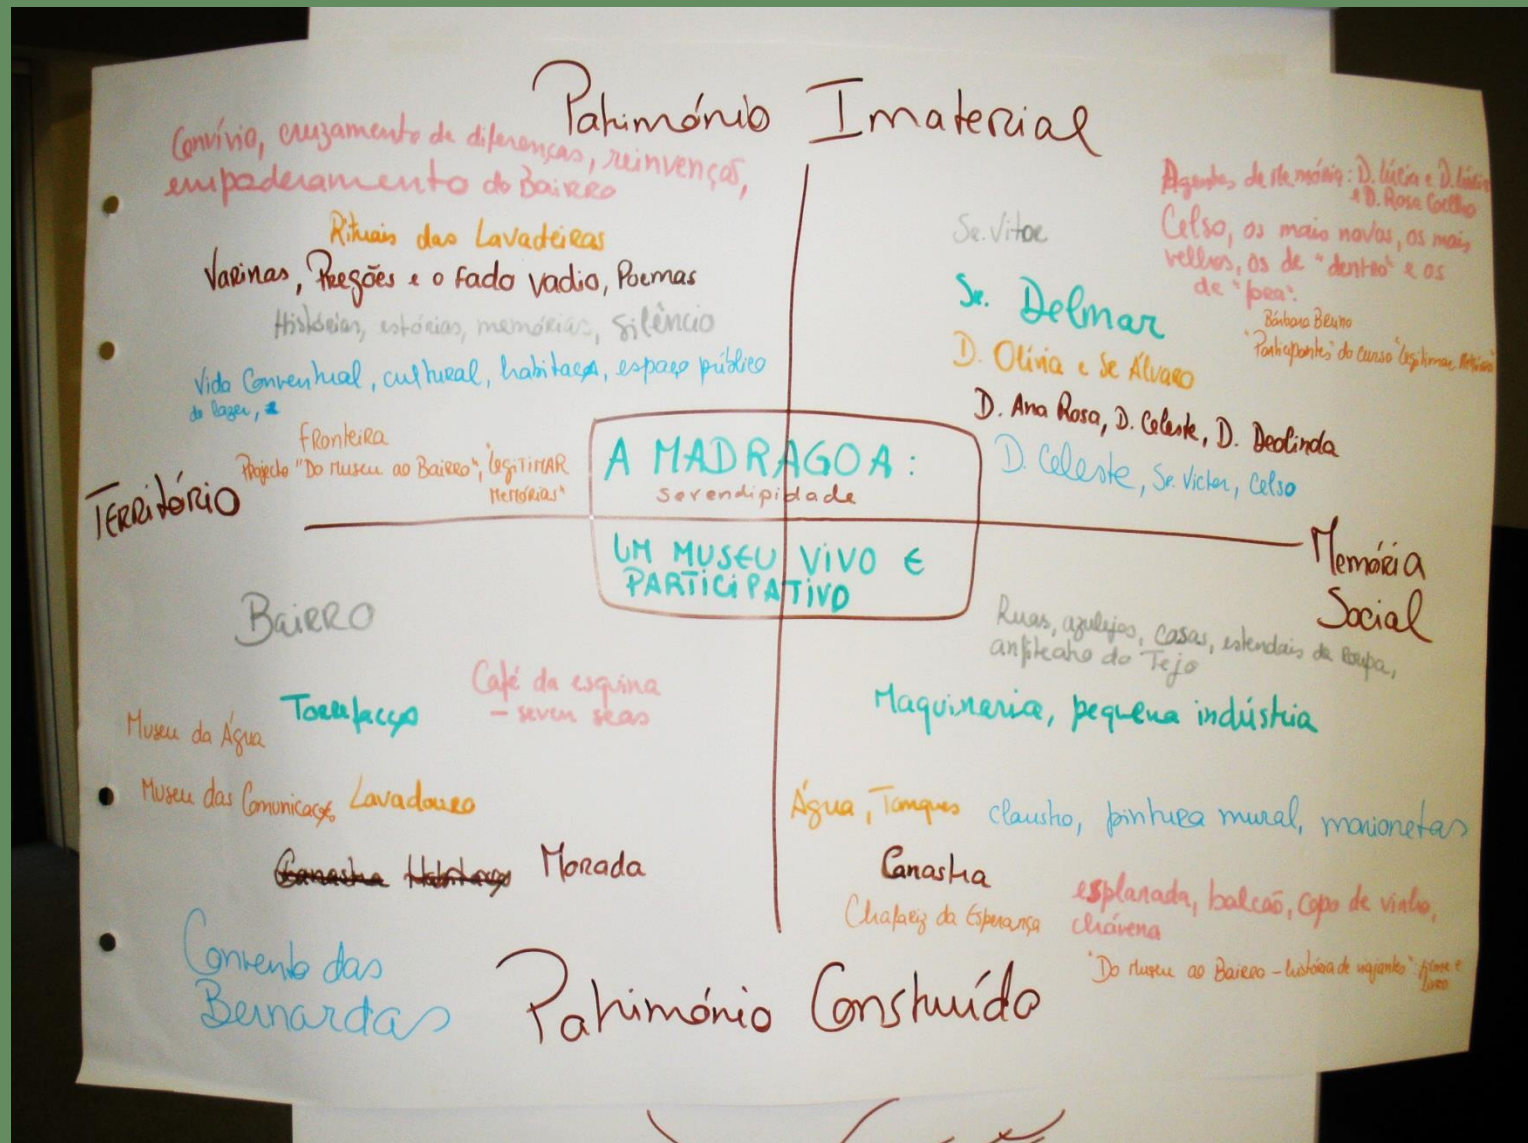 Património Imaterial
Convívio, cruzamento de diferenças, reinvenção,
empoderamento do Bairro
Rituais das Lavadeiras
Varinas, Pregões e o fado vadio, Poemas
Histórias, estórias, memórias, silêncio
Vida Conventual, cultural, habitação, espaço público
de lazer,
Fronteira
Projecto "Do Museu ao Bairro", "Legitimar
Memórias"
Território
Agentes de Memória: D. Lúcia e D.
e D. Rosa Coelho
Celso, os mais novos, os mais
velhos, os de "dentro" e os
de "fora".
Bárbara Bruno
"Participantes" do curso "Legitimar Memórias"
Sr. Vitor
Sr. Delmar
D. Olívia e Sr Álvaro
D. Ana Rosa, D. Celeste, D. Deolinda
D. Celeste, Sr. Victor, Celso
A MADRAGOA:
serendipidade
UM MUSEU VIVO E
PARTICIPATIVO
Memória
Social
Bairro
Café da esquina
- seven seas
Torrefacção
Museu da Água
Museu das Comunicações
Lavadouro
Canastra Habitação Morada
Convento das
Bernardas
Ruas, azulejos, casas, estendais da roupa,
anfiteatro do Tejo
Maquinaria, pequena indústria
Água, Tanques
claustro, pintura mural, marionetas
Canastra
Chafariz da Esperança
esplanada, balcão, copo de vinho,
chávena
"Do Museu ao Bairro - história de viajantes": filme e
livro
Património Construído